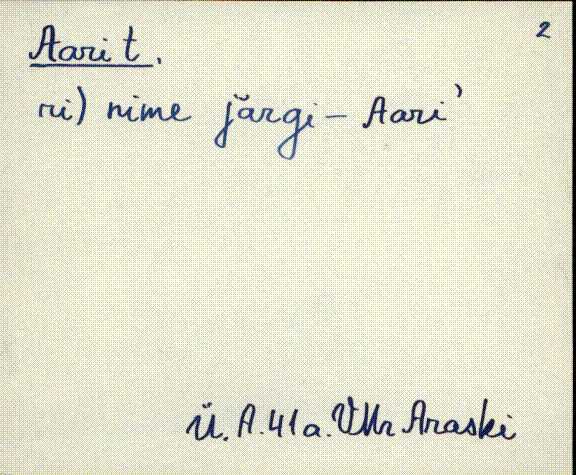 2
Aari t.
ri) nime järgi – Aari'
Ü. A. 41 a. VMr Araski